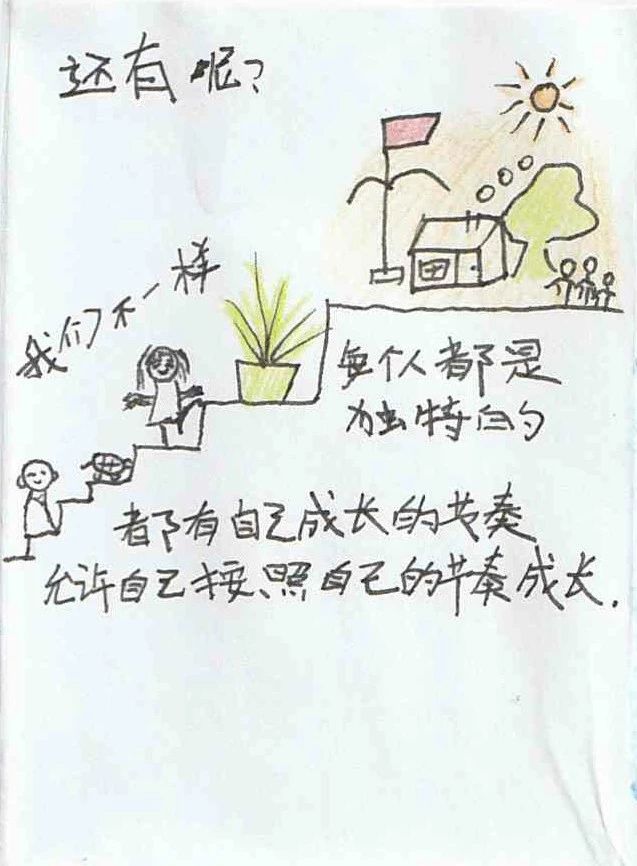 还有呢?
我们不一样
每个人都是
独特的
都有自己成长的节奏
允许自己按照自己的节奏成长.